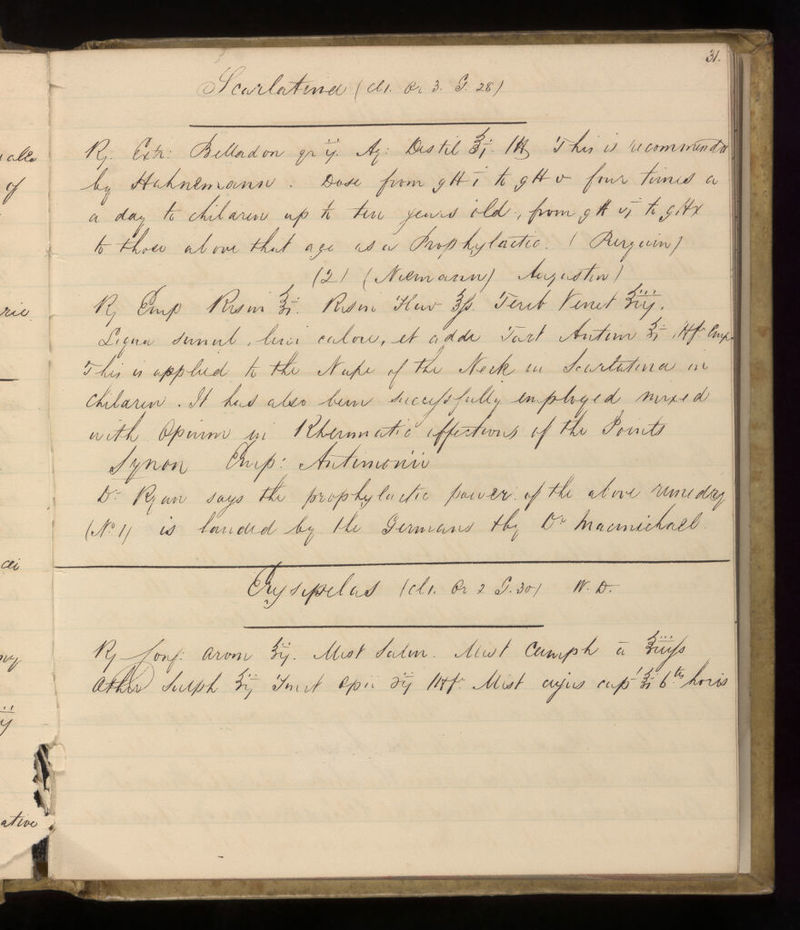 31.
Scarlatina (Cl 1. Or 3. G. 28)
℞. Extr: Belladon gr ij. Aq: Distil ℥j. M This is recommended
by Hahnemann. Dose from gtt i to gtt v four times a
a day to children up to ten years old, from gtt vj to gtt x
to those above that age as a Prophylactic. (Berguin)
(2) (Niemann) Augustin)
℞ Emp Resin ℥j. Resin Flav ℥ſs. Tereb Venet ℥iij.
Liqua simul, leni calore, et adde Tart Antim ℥j Ht Emp.
This is applied to the Nape of the Neck in Scarlatina in
Children. It has also been successfully employed mixed
with Opium in Rheumatic affections of the Joints
Synon Emp: Antimonii
Dr Ryan says the prophylactic power of the above remedy
(No 1) is lauded by the Germans & by Dr Macmichael
Erysipelas (Cl 1. Or 2 G. 30) W. D.
℞ Conf: arom ʒij. Mist Salin. Mist Camph ā ℥iijſs
Æther Sulph ʒij Tinct Opii ʒij Ht Mist cujus cap ℥j 6th horis
ative
of